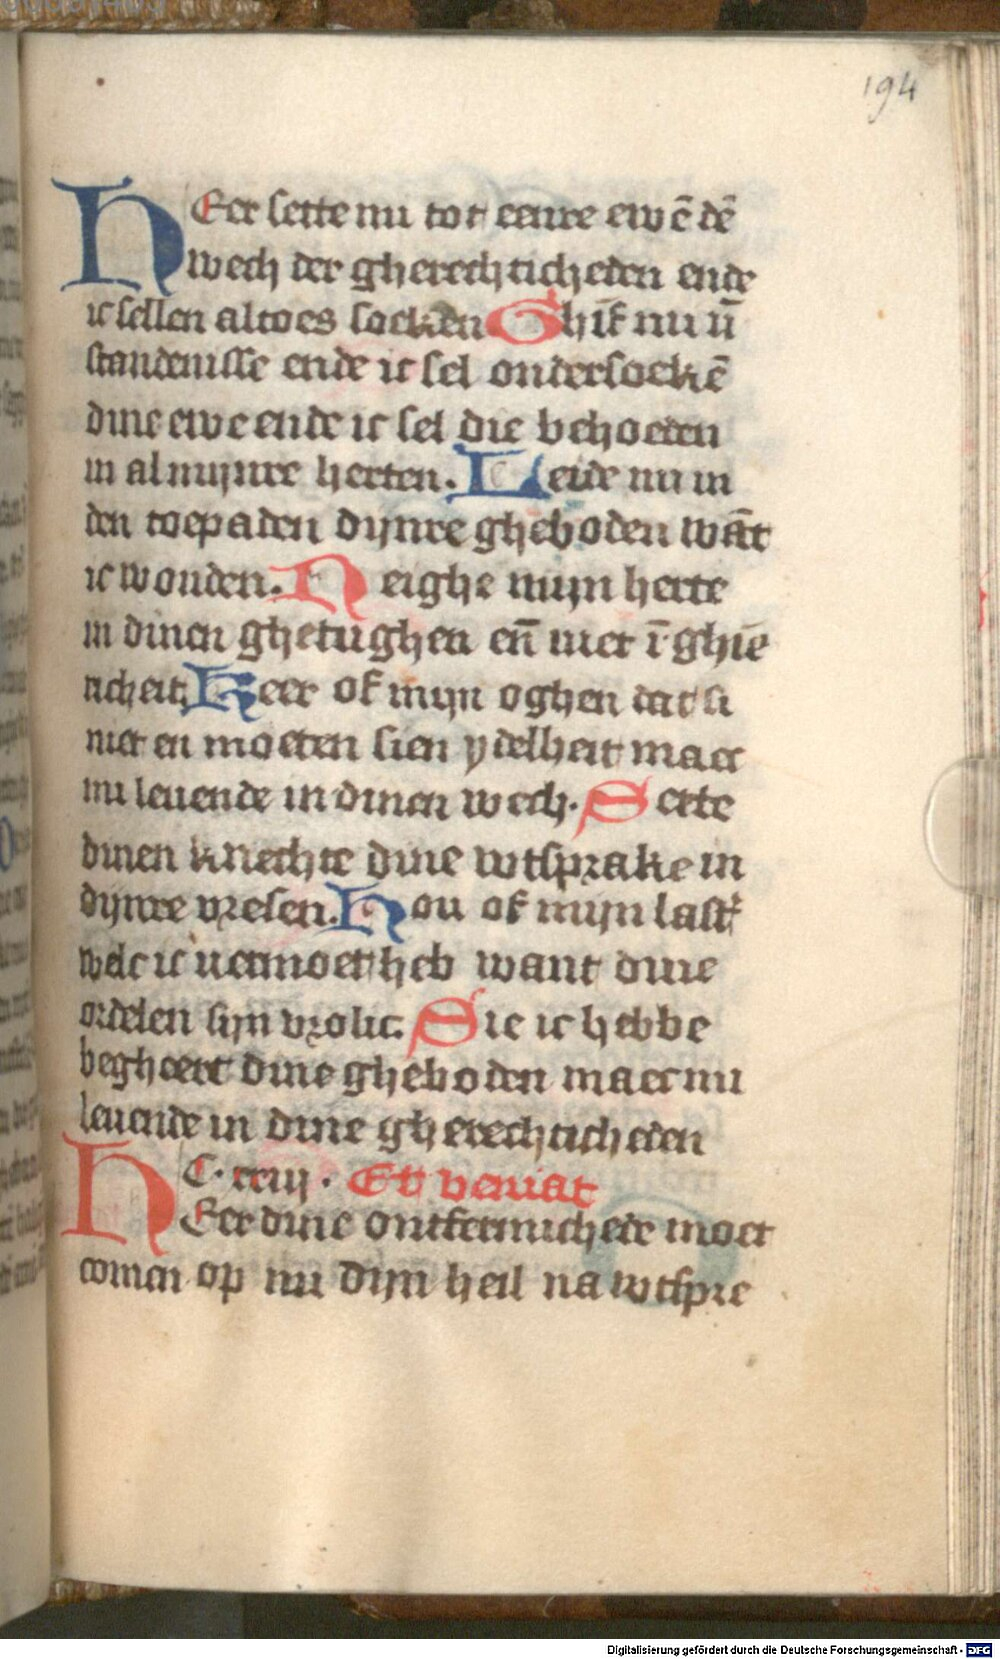 194
HEer sette mi tot eenre ewē dē
wech der gherechticheden ende
ic sellen altoes soeken Ghif mi ū
standenisse ende ic sel ondersoekē
dine ewe ende ic sel die behoeden
in al mijnre herten. Leide mi in
den toepaden dijnre gheboden wāt
ic wouden. Neighe mijn herte
in dinen ghetughen en̄ niet ī ghie
richeit Keer of mijn oghen dat si
niet en moeten sien ydelheit maec
mi leuende in dinen wech. Sette
dinen knechte dine wtsprake in
dijnre vresen. Hou of mijn last̾
welc ic uermoet heb want dine
ordelen sijn vrolic. Sie ic hebbe
begheert dine gheboden maec mi
leuende in dine gherechticheden
C. xviij. Et veniat
HEer dine ontfermichede moet
comen op mi dijn heil na wtspre
Digitalisierung gefördert durch die Deutsche Forschungsgemeinschaft - DFG